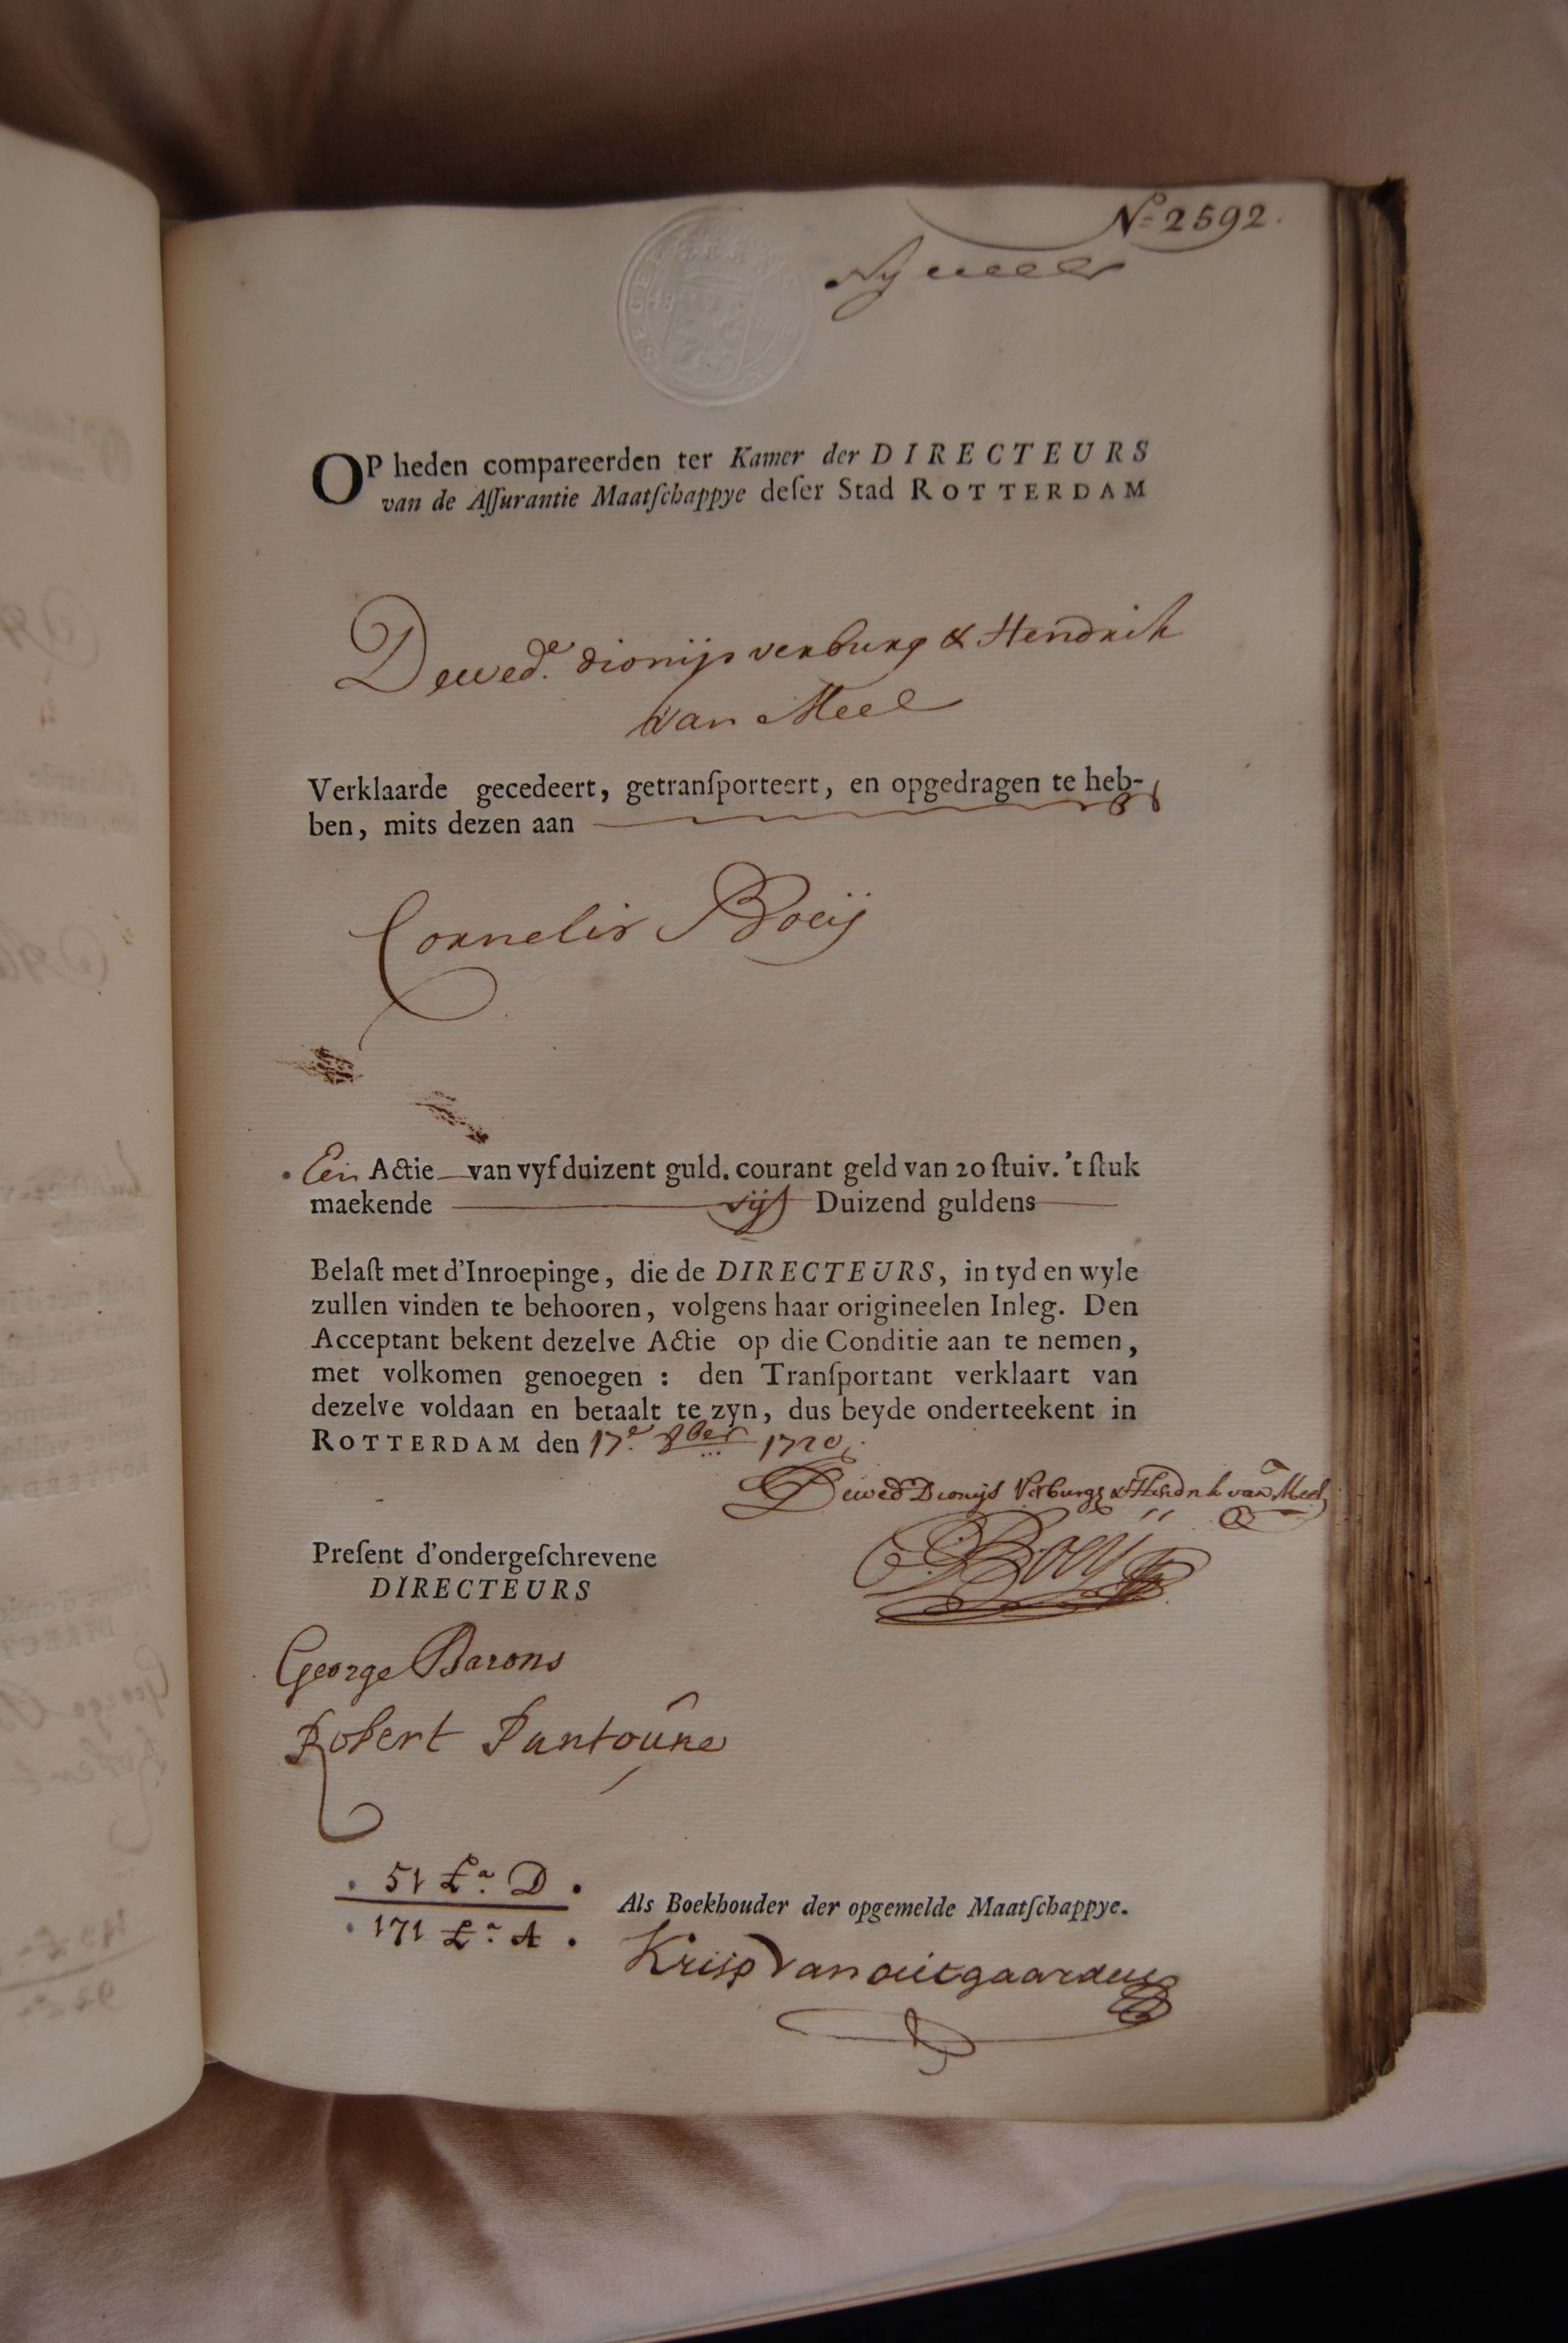 No 2592.
OP heden compareerden ter Kamer der DIRECTEURS
van de Aſſurantie Maatſchappye deſer Stad ROTTERDAM
De wede. dionijs verburg & Hendrik
van Meel
Verklaarde gecedeert, getranſporteert, en opgedragen te heb-
ben, mits dezen aan
Cornelis Boeij
Een Actie van vyf duizent guld. courant geld van 20 ſtuiv. 't ſtuk
maekende vijf Duizend guldens
Belaſt met d'Inroepinge, die de DIRECTEURS, in tyd en wyle
zullen vinden te behooren, volgens haar origineelen Inleg. Den
Acceptant bekent dezelve Actie op die Conditie aan te nemen,
met volkomen genoegen : den Tranſportant verklaart van
dezelve voldaan en betaalt te zyn, dus beyde onderteekent in
ROTTERDAM den 17e. 8ber 1720
De wed Dionijs Verburg & Hendrik van Meel
C Boeij
Preſent d'ondergeſchrevene
DIRECTEURS
George Barons
Robert
51 La. D.
171 La. A.
Als Boekhouder der opgemelde Maatſchappye.
Krisp Van outgaarden